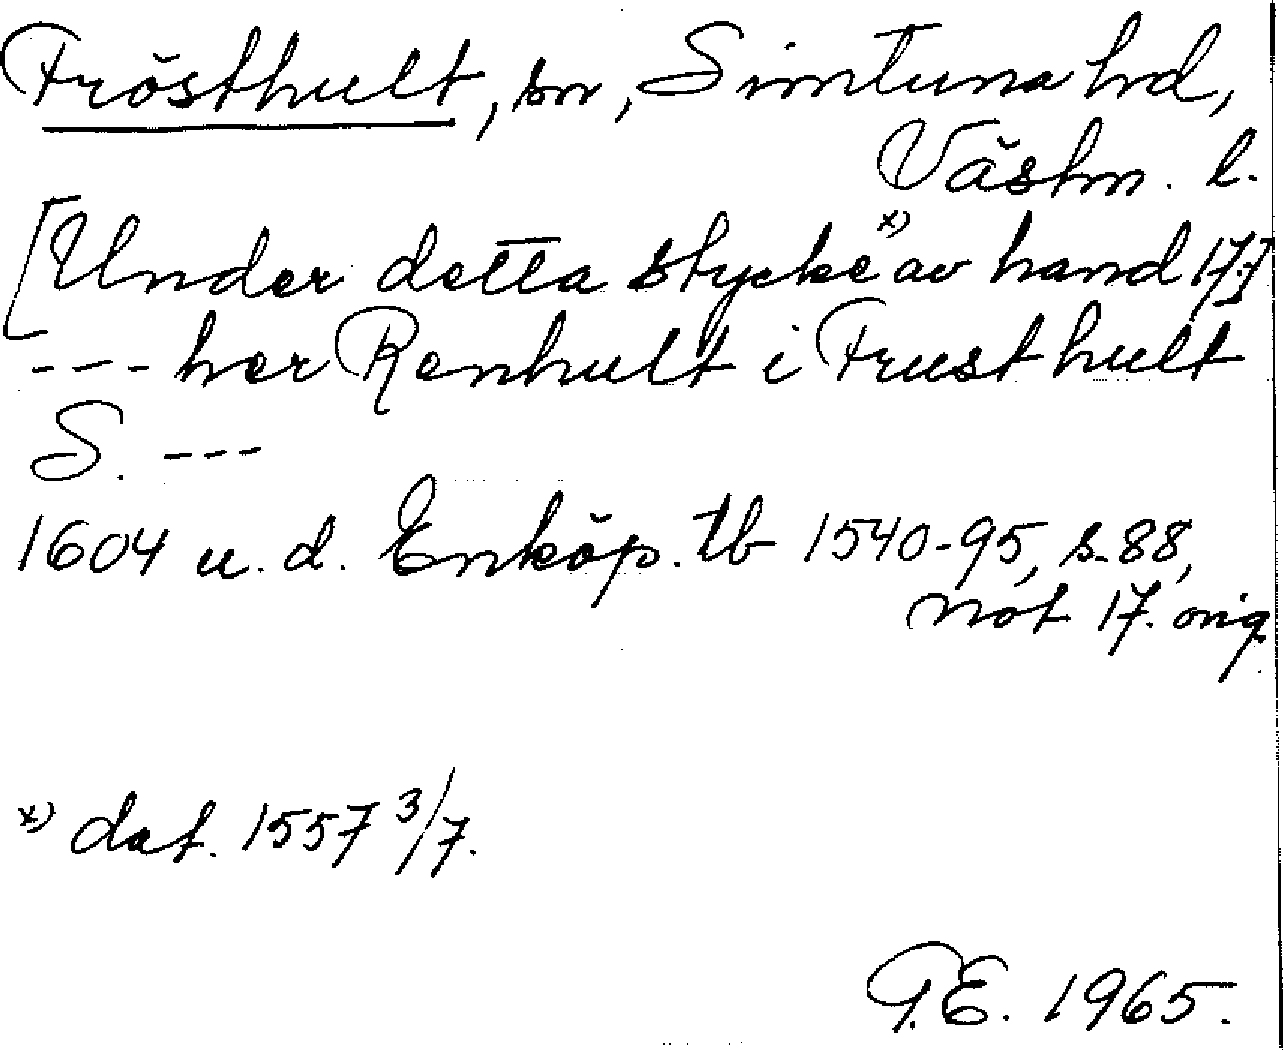 Frösthult, sn, Simtuna hd,
Västm. l.
[Under detta stycke x) av hand 17.]
--- her Renhult i Frusthult
S. ---
1604 u. d. Enköp. tb 1540-95, s. 88,
not 17. orig
x) dat. 1557 3/7.
G.E. 1965.